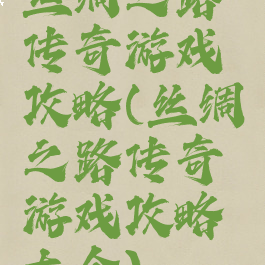 丝绸之路
传奇游戏
攻略(丝绸
之路传奇
游戏攻略
大全)